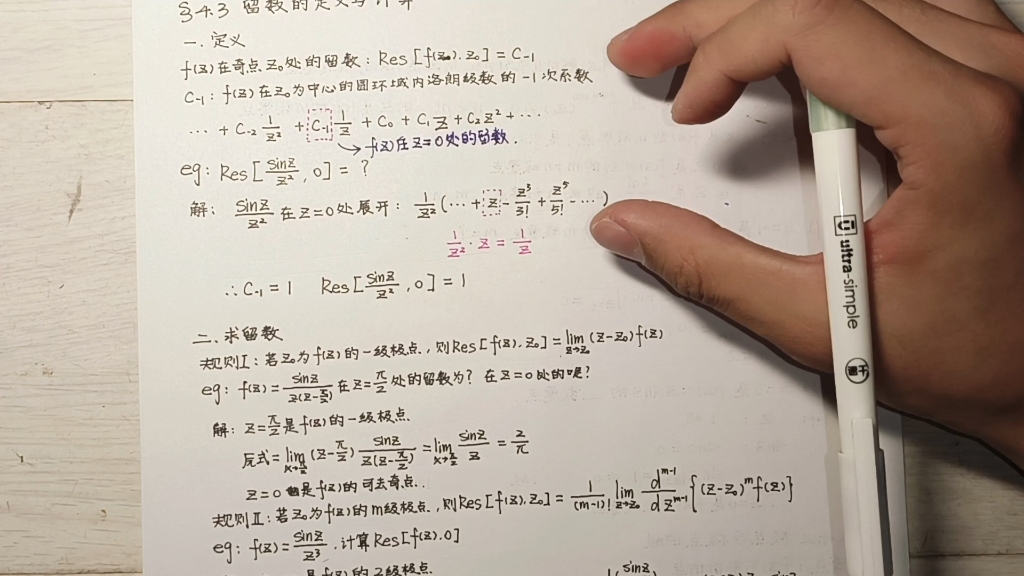 §4.3 留数的定义与计算
一.定义
f(z)在奇点z₀处的留数：Res[f(z₀).z₀]=C₋₁
C₋₁：f(z)在z₀为中心的圆环域内洛朗级数的-1次系数
⋯+C₋₂ 1/z² +C₋₁ 1/z +C₀+C₁z+C₂z²+⋯
f(z)在z=0处的留数.
eg：Res[sinz/z²,0]=？
解：sinz/z² 在z=0处展开：1/z²(⋯+z-z³/3!+z⁵/5!-⋯)
1/z²·z=1/z
∴C₋₁=1 Res[sinz/z²,0]=1
二.求留数
规则Ⅰ：若z₀为f(z)的一级极点,则Res[f(z).z₀]=lim z→z₀ (z-z₀)f(z)
eg：f(z)=sinz/z(z-π/2)在z=π/2处的留数为？在z=0处的呢？
解：z=π/2是f(z)的一级极点
原式=lim x→π/2 (z-π/2) sinz/z(z-π/2)=lim x→π/2 sinz/z=2/π
z=0是f(z)的可去奇点.
规则Ⅱ：若z₀为f(z)的m级极点,则Res[f(z).z₀]=1/(m-1)! lim z→z₀ dᵐ⁻¹/dzᵐ⁻¹{(z-z₀)ᵐf(z)}
eg：f(z)=sinz/z³.计算Res[f(z).0]
是f(z)的2级极点
ultra-simple